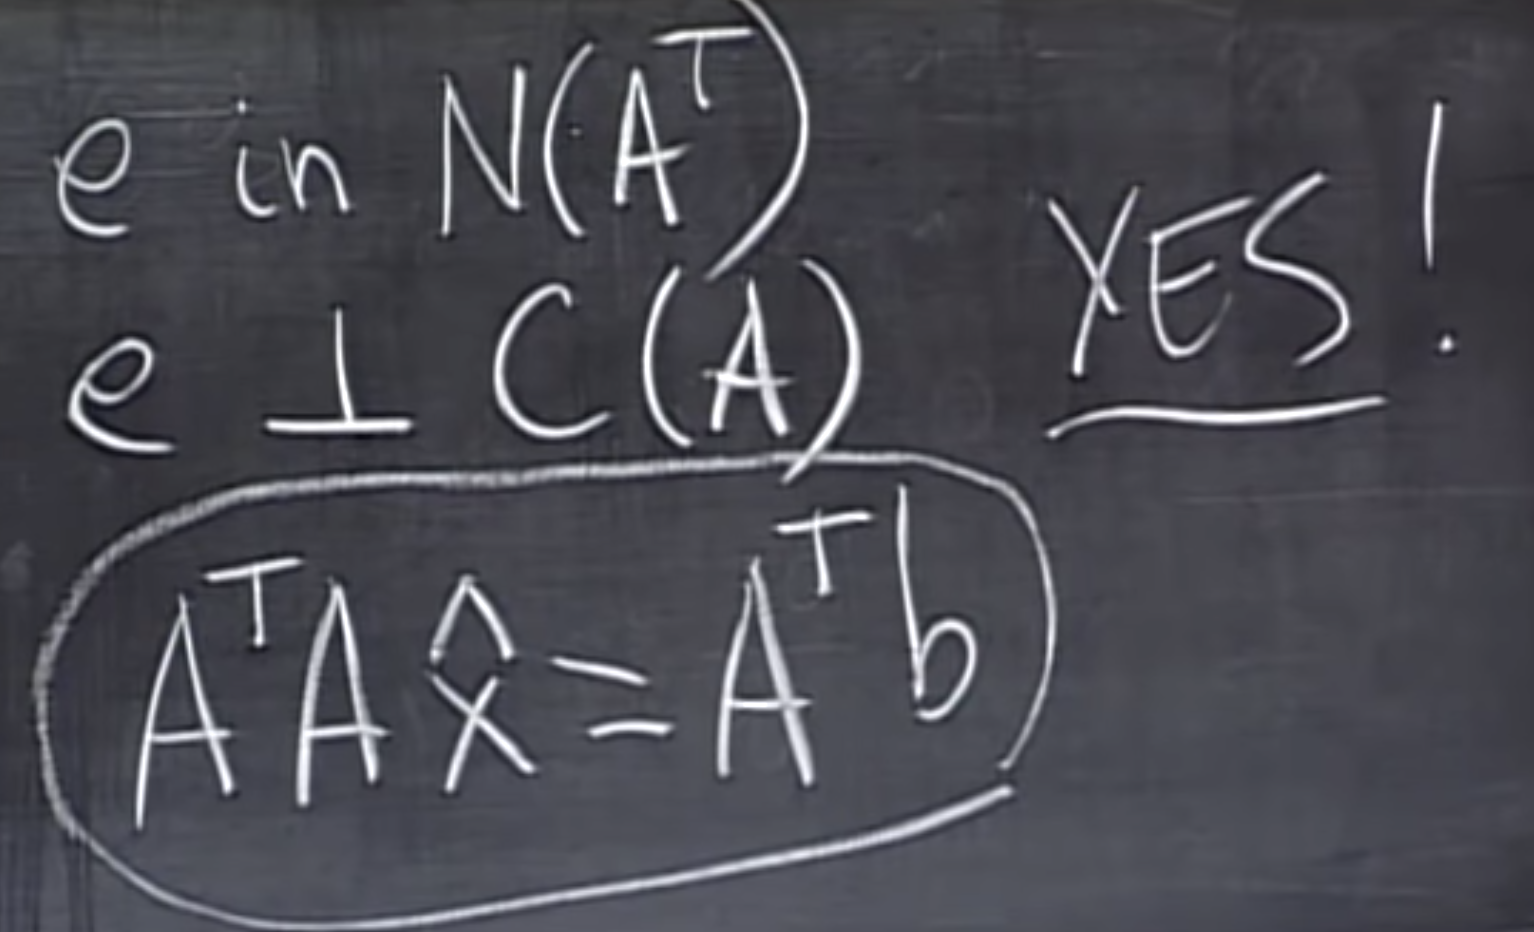 e in N(Aᵀ)
e ⊥ C(A)
YES!
AᵀA x̂ = Aᵀb